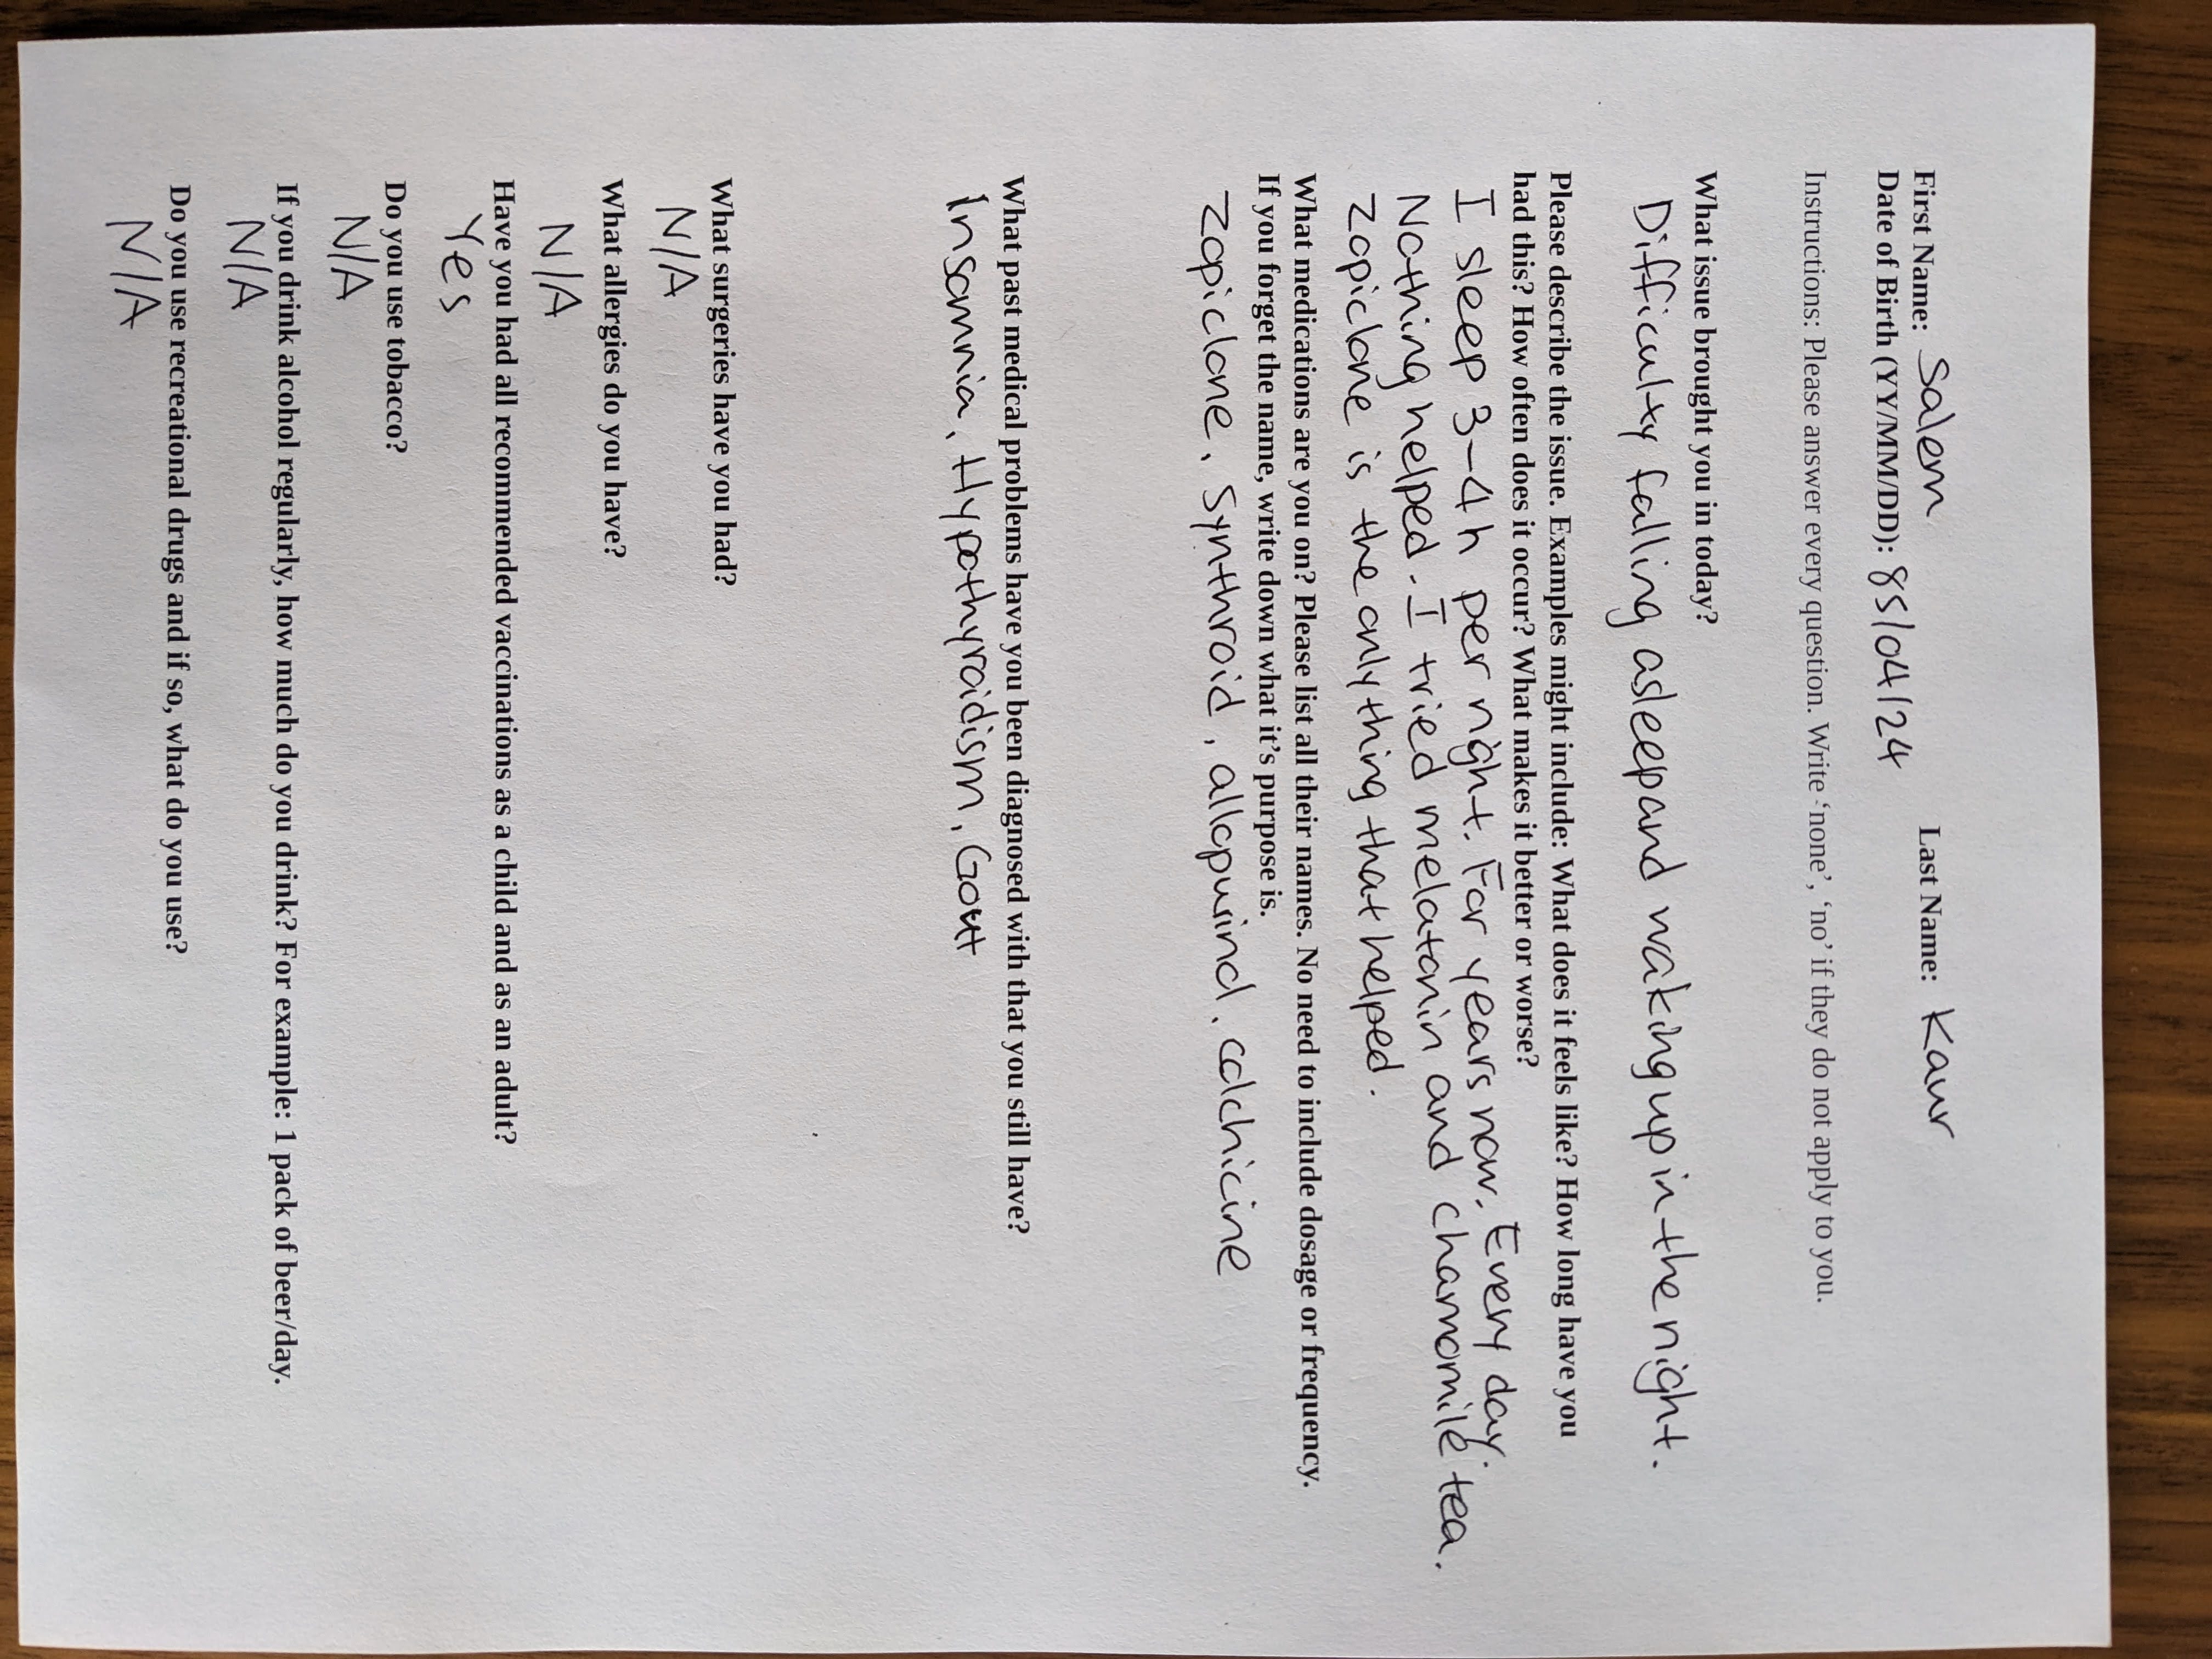 First Name: Salem Last Name: Kaur
Date of Birth (YY/MM/DD): 85/04/24
Instructions: Please answer every question. Write ‘none’, ‘no’ if they do not apply to you.
What issue brought you in today?
Difficulty falling asleep and waking up in the night.
Please describe the issue. Examples might include: What does it feels like? How long have you
had this? How often does it occur? What makes it better or worse?
I sleep 3-4h per night. For years now. Every day.
Nothing helped. I tried melatonin and chamomile tea.
Zopiclone is the only thing that helped.
What medications are you on? Please list all their names. No need to include dosage or frequency.
If you forget the name, write down what it’s purpose is.
Zopiclone, synthroid, allopurinol, colchicine
What past medical problems have you been diagnosed with that you still have?
Insomnia, Hypothyroidism, Gout
What surgeries have you had?
N/A
What allergies do you have?
N/A
Have you had all recommended vaccinations as a child and as an adult?
Yes
Do you use tobacco?
N/A
If you drink alcohol regularly, how much do you drink? For example: 1 pack of beer/day.
N/A
Do you use recreational drugs and if so, what do you use?
N/A